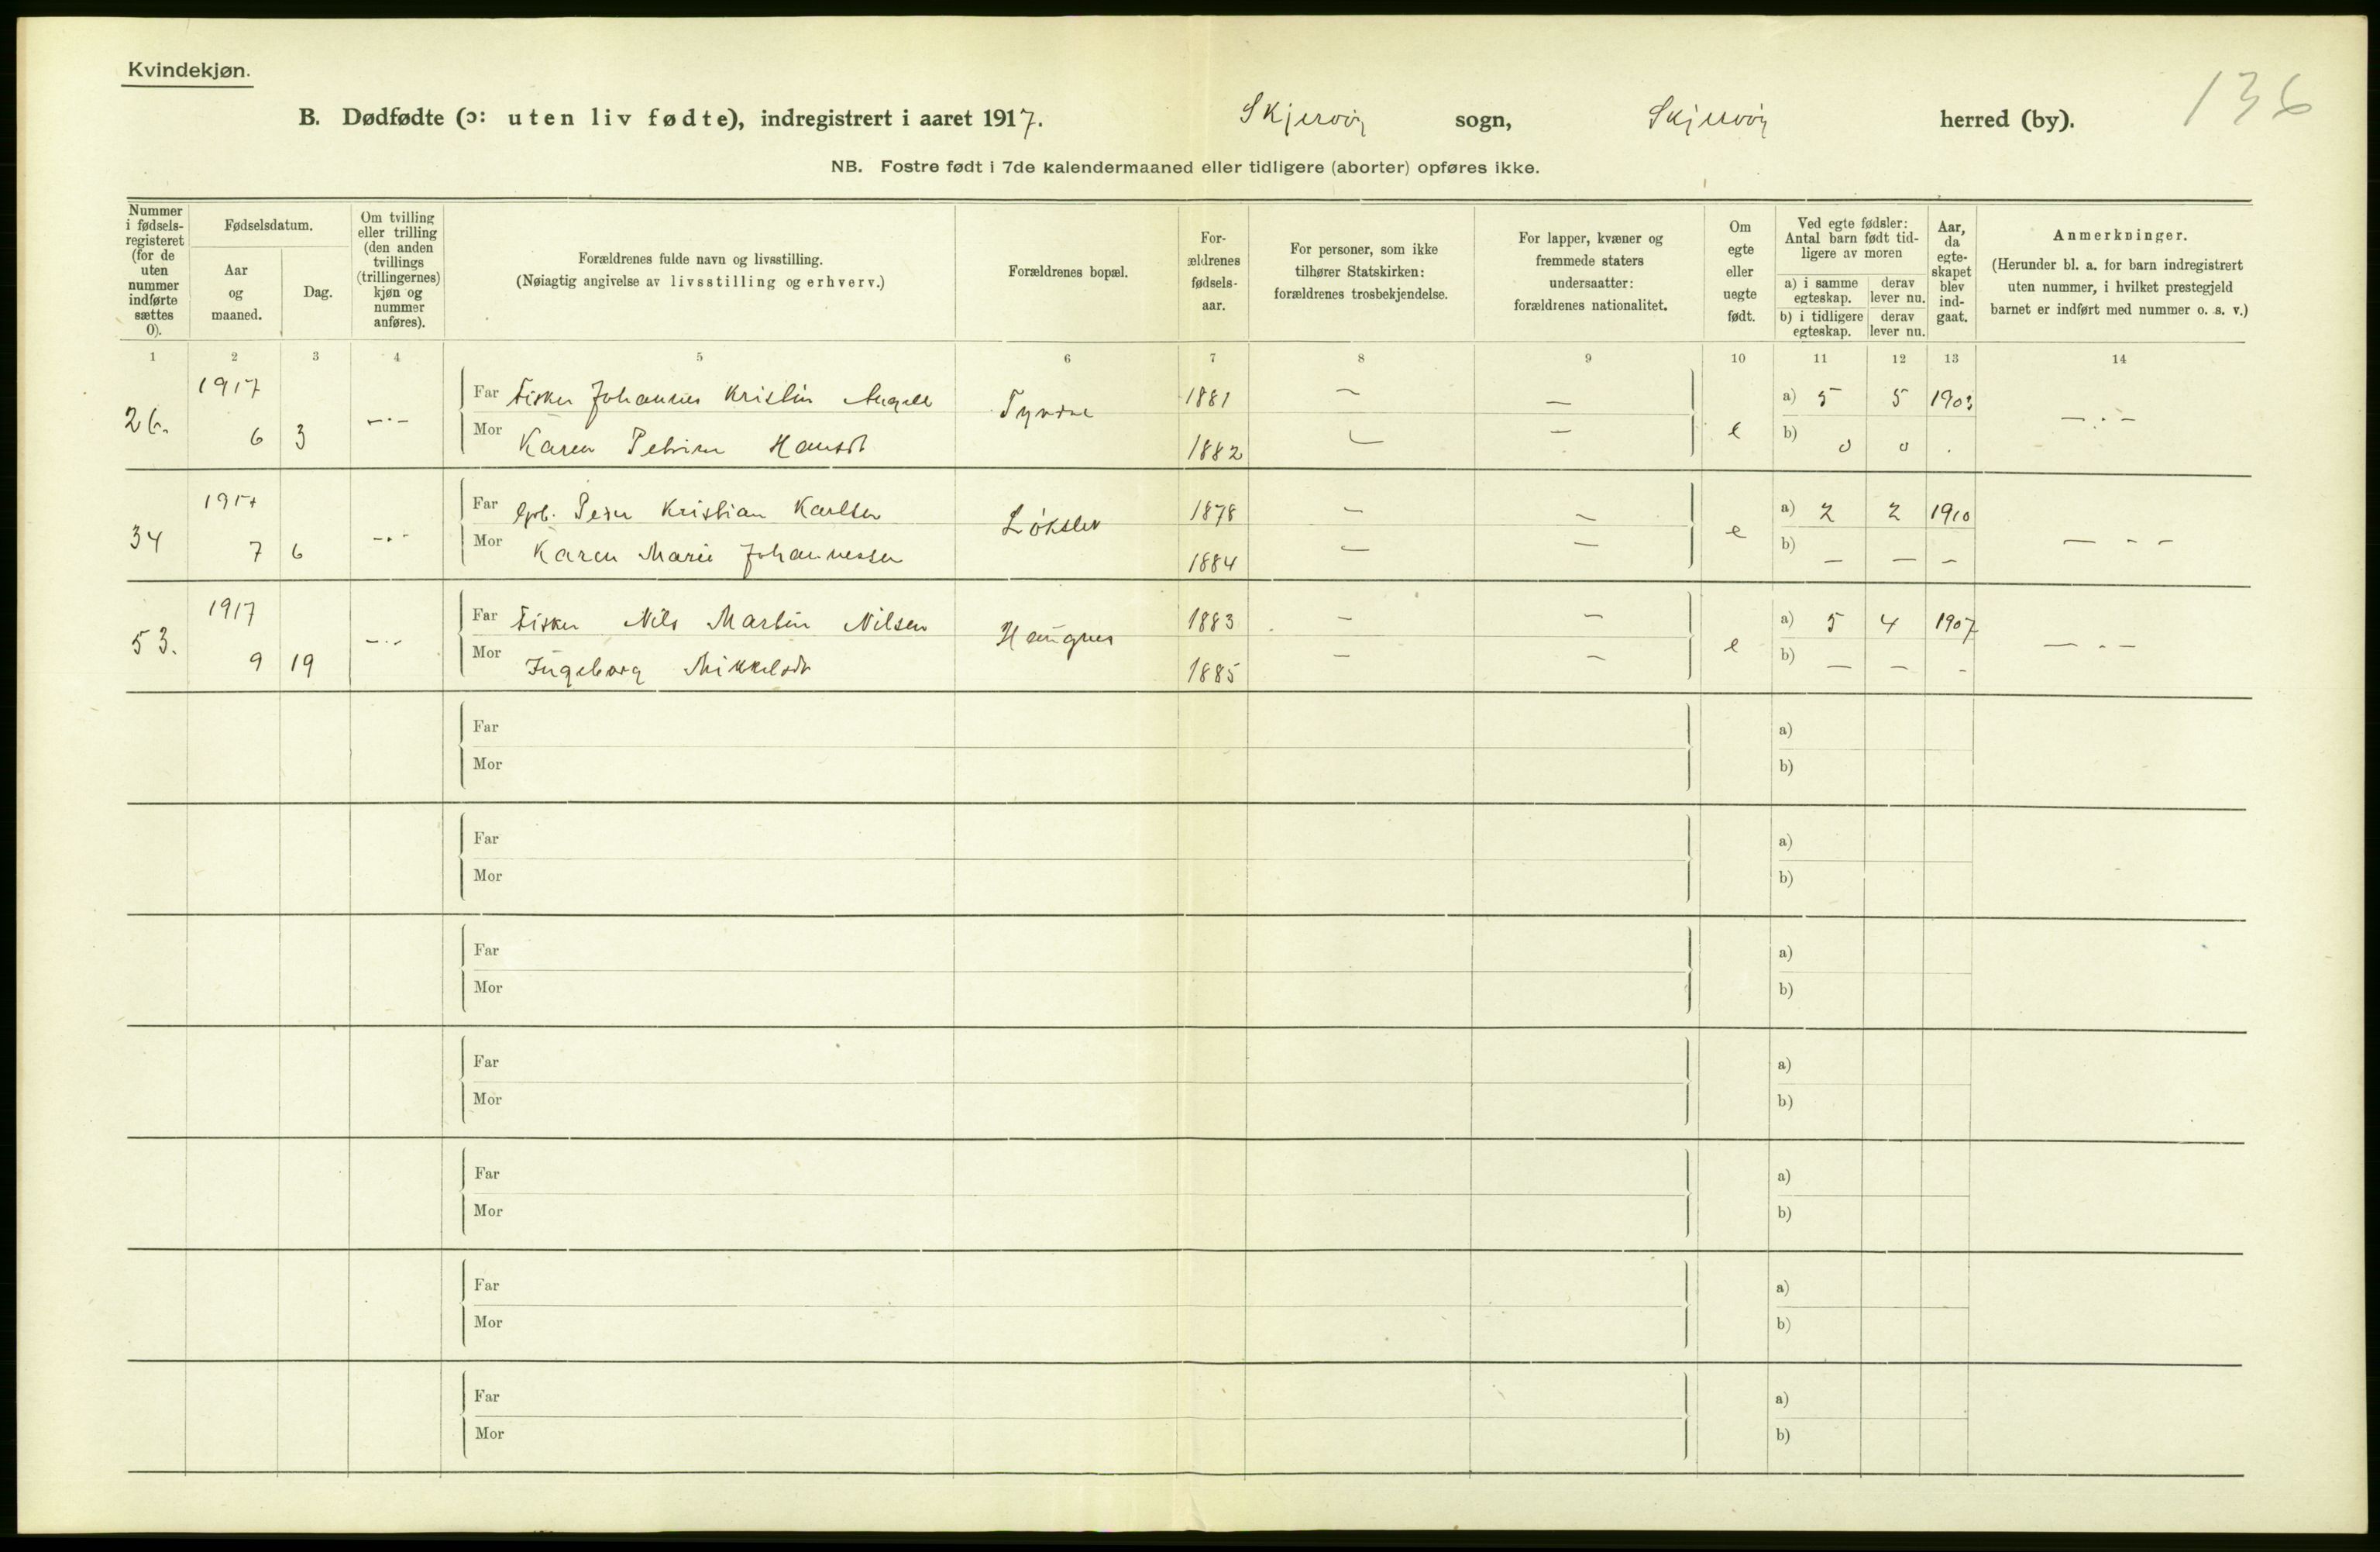 Kvindekjøn.
136
B. Dødfødte (ɔ: uten liv fødte), indregistrert i aaret 1917. Skjervöy sogn, Skjervöy herred (by).
NB. Fostre født i 7de kalendermaaned eller tidligere (aborter) opføres ikke.
Nummer i fødsels-registeret (for de uten nummer indførte sættes 0).
Fødselsdatum.
Aar og maaned.
Dag.
Om tvilling eller trilling (den anden tvillings (trillingernes) kjøn og nummer anføres).
Forældrenes fulde navn og livsstilling.
(Nøiagtig angivelse av livsstilling og erhverv.)
Forældrenes bopæl.
For-ældrenes fødsels-aar.
For personer, som ikke tilhører Statskirken: forældrenes trosbekjendelse.
For lapper, kvæner og fremmede staters undersaatter: forældrenes nationalitet.
Om egte eller uegte født.
Ved egte fødsler: Antal barn født tid-ligere av moren
a) i samme egteskap. derav lever nu.
b) i tidligere egteskap. derav lever nu.
Aar, da egte-skapet blev ind-gaat.
Anmerkninger.
(Herunder bl. a. for barn indregistrert uten nummer, i hvilket prestegjeld barnet er indført med nummer o. s. v.)
1 2 3 4 5 6 7 8 9 10 11 12 13 14
26. 1917 6 3 —·— Far Fisker Johannes Kristin 1881 — — a) 5 5 1903 —·—
Mor Karen Petrine Hansdt 1882 — — e b) 0 0 .
34 1917 7 6 —·— Far Peder Kristian Karlsen Lökslet 1878 — — a) 2 2 1910 — - —
Mor Karen Marie Johannessen 1884 — — e b) — — —
53. 1917 9 19 —·— Far Fisker Nils Martin Nilsen Haugnes 1883 — — a) 5 4 1907 — - —
Mor Ingeborg Mikkelsdt 1885 — — e b) — — -
Far a)
Mor b)
Far a)
Mor b)
Far a)
Mor b)
Far a)
Mor b)
Far a)
Mor b)
Far a)
Mor b)
Far a)
Mor b)